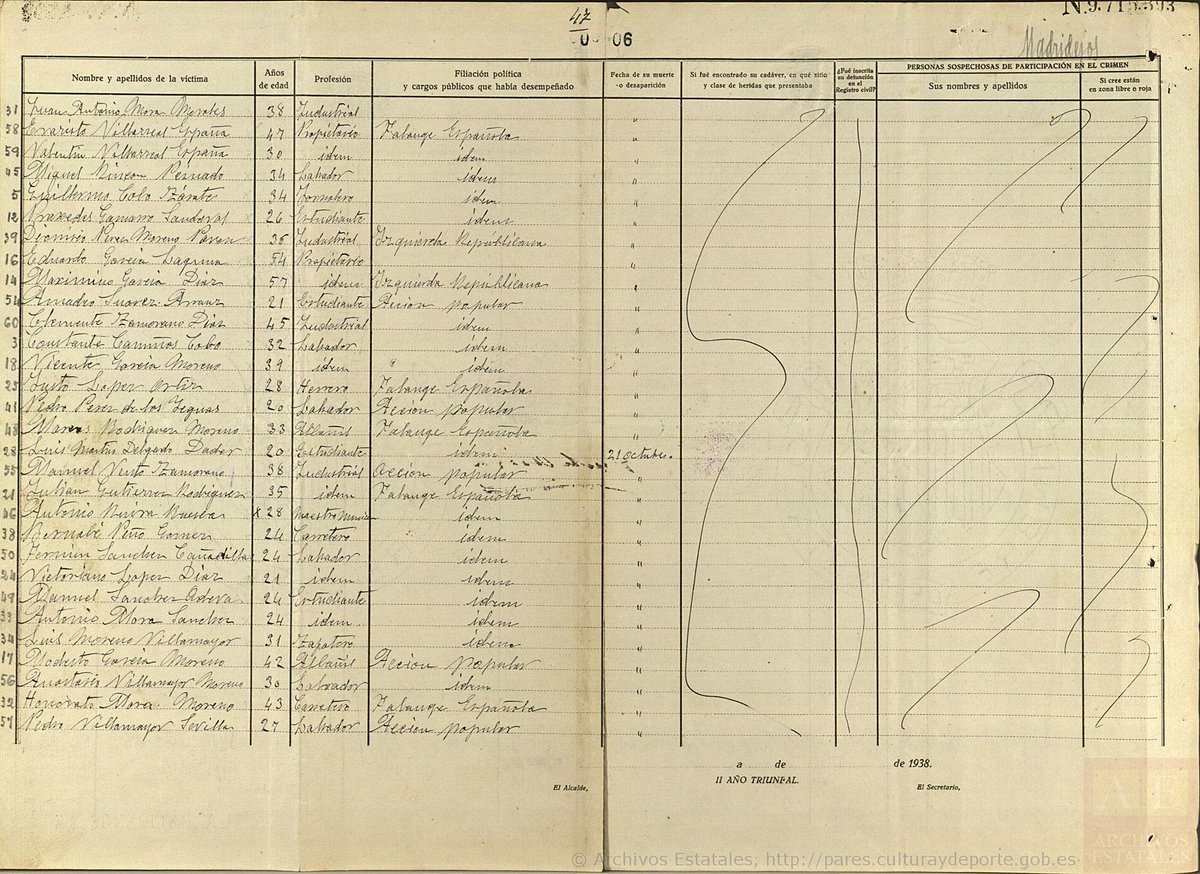 47
06
N.9.715.393
Madridejos
Nombre y apellidos de la víctima
Años de edad
Profesión
Filiación política y cargos públicos que había desempeñado
Fecha de su muerte o desaparición
Si fué encontrado su cadáver, en qué sitio y clase de heridas que presentaba
¿Fué inscrita su defunción en el Registro civil?
PERSONAS SOSPECHOSAS DE PARTICIPACIÓN EN EL CRIMEN
Sus nombres y apellidos
Si cree están en zona libre o roja
31 Juan Antonio Mora Morales 38 Industrial "
58 Evaristo Villarreal España 47 Propietario Falange Española "
59 Valentin Villarreal España 30 idem idem "
45 Miguel Rincon Peinado 34 Labrador idem "
5 Guillermo Cobo Zárate 34 Jornalero idem "
12 Praxedes Gamarro Sandoval 26 Estudiante idem "
39 Dionisio Perez Moreno 36 Industrial Izquierda Republicana "
16 Eduardo Garcia Laguna 54 Propietario "
14 Maximino Garcia Diaz 57 idem Izquierda Republicana "
54 Amadeo Suarez Arranz 21 Estudiante Accion popular "
60 Clemente Zamorano Diaz 45 Industrial idem "
3 Constante Camuñas Cobo 32 Labrador idem "
18 Vicente Garcia Moreno 39 idem " idem "
23 Justo Lopez Ortiz 28 Herrero Falange Española "
41 Pedro Perez de los Yeguas 20 Labrador Accion popular "
48 Marcos Rodriguez Moreno 33 Albañil Falange Española "
28 Luis Martin Delgado Dador 20 Estudiante idem 21 octubre.
55 Manuel Vento Zamorano 38 Industrial Accion popular "
21 Julian Gutierrez Rodriguez 35 idem Falange Española "
46 Antonio Rivera 28 Maestro idem "
38 Bernabé Peño Gomez 24 Carretero idem "
50 Fermin Sanchez Cañadilla 24 Labrador idem "
24 Victoriano Lopez Diaz 21 idem idem "
49 Manuel Sanchez 24 Estudiante idem "
33 Antonio Mora Sanchez 24 idem idem "
34 Luis Moreno Villamayor 31 Zapatero idem "
17 Modesto Garcia Moreno 42 Albañil Accion popular "
56 Anastasio Villamayor Moreno 30 Labrador idem "
32 Honorato Mora Moreno 43 Carretero Falange Española "
57 Pedro Villamayor Sevilla 27 Labrador Accion popular "
a de de 1938.
II AÑO TRIUNFAL.
El Alcalde,
El Secretario,
A E
ARCHIVOS
ESTATALES
© Archivos Estatales, http://pares.culturaydeporte.gob.es